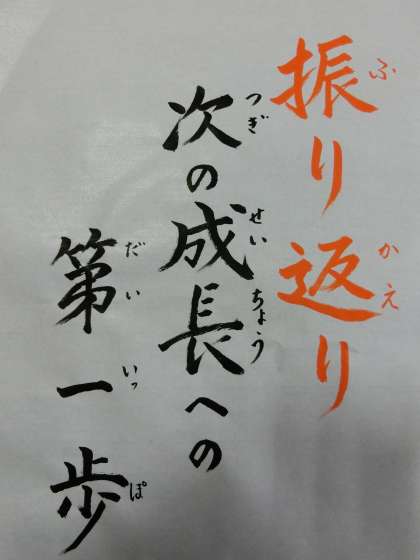 振り返り
ふ かえ
次の成長への
つぎ せいちょう
第一歩
だいいっぽ